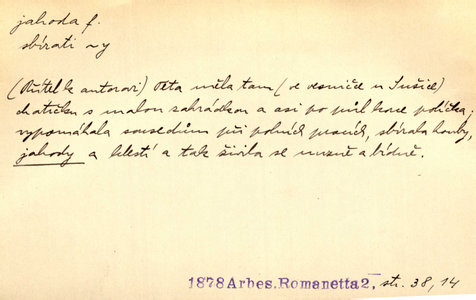 jahoda f.
sbírati ~y
(Přítel k autorovi) Teta měla tam (ve vesnici u Sušice)
chatrčku s malou zahrádkou a asi po půl korce políčka,
vypomáhala sousedům při polních pracích, sbírala houby,
jahody a klestí a tak živila se nuzně a bídně.
1878 Arbes. Romanetta 2, str. 38, 14